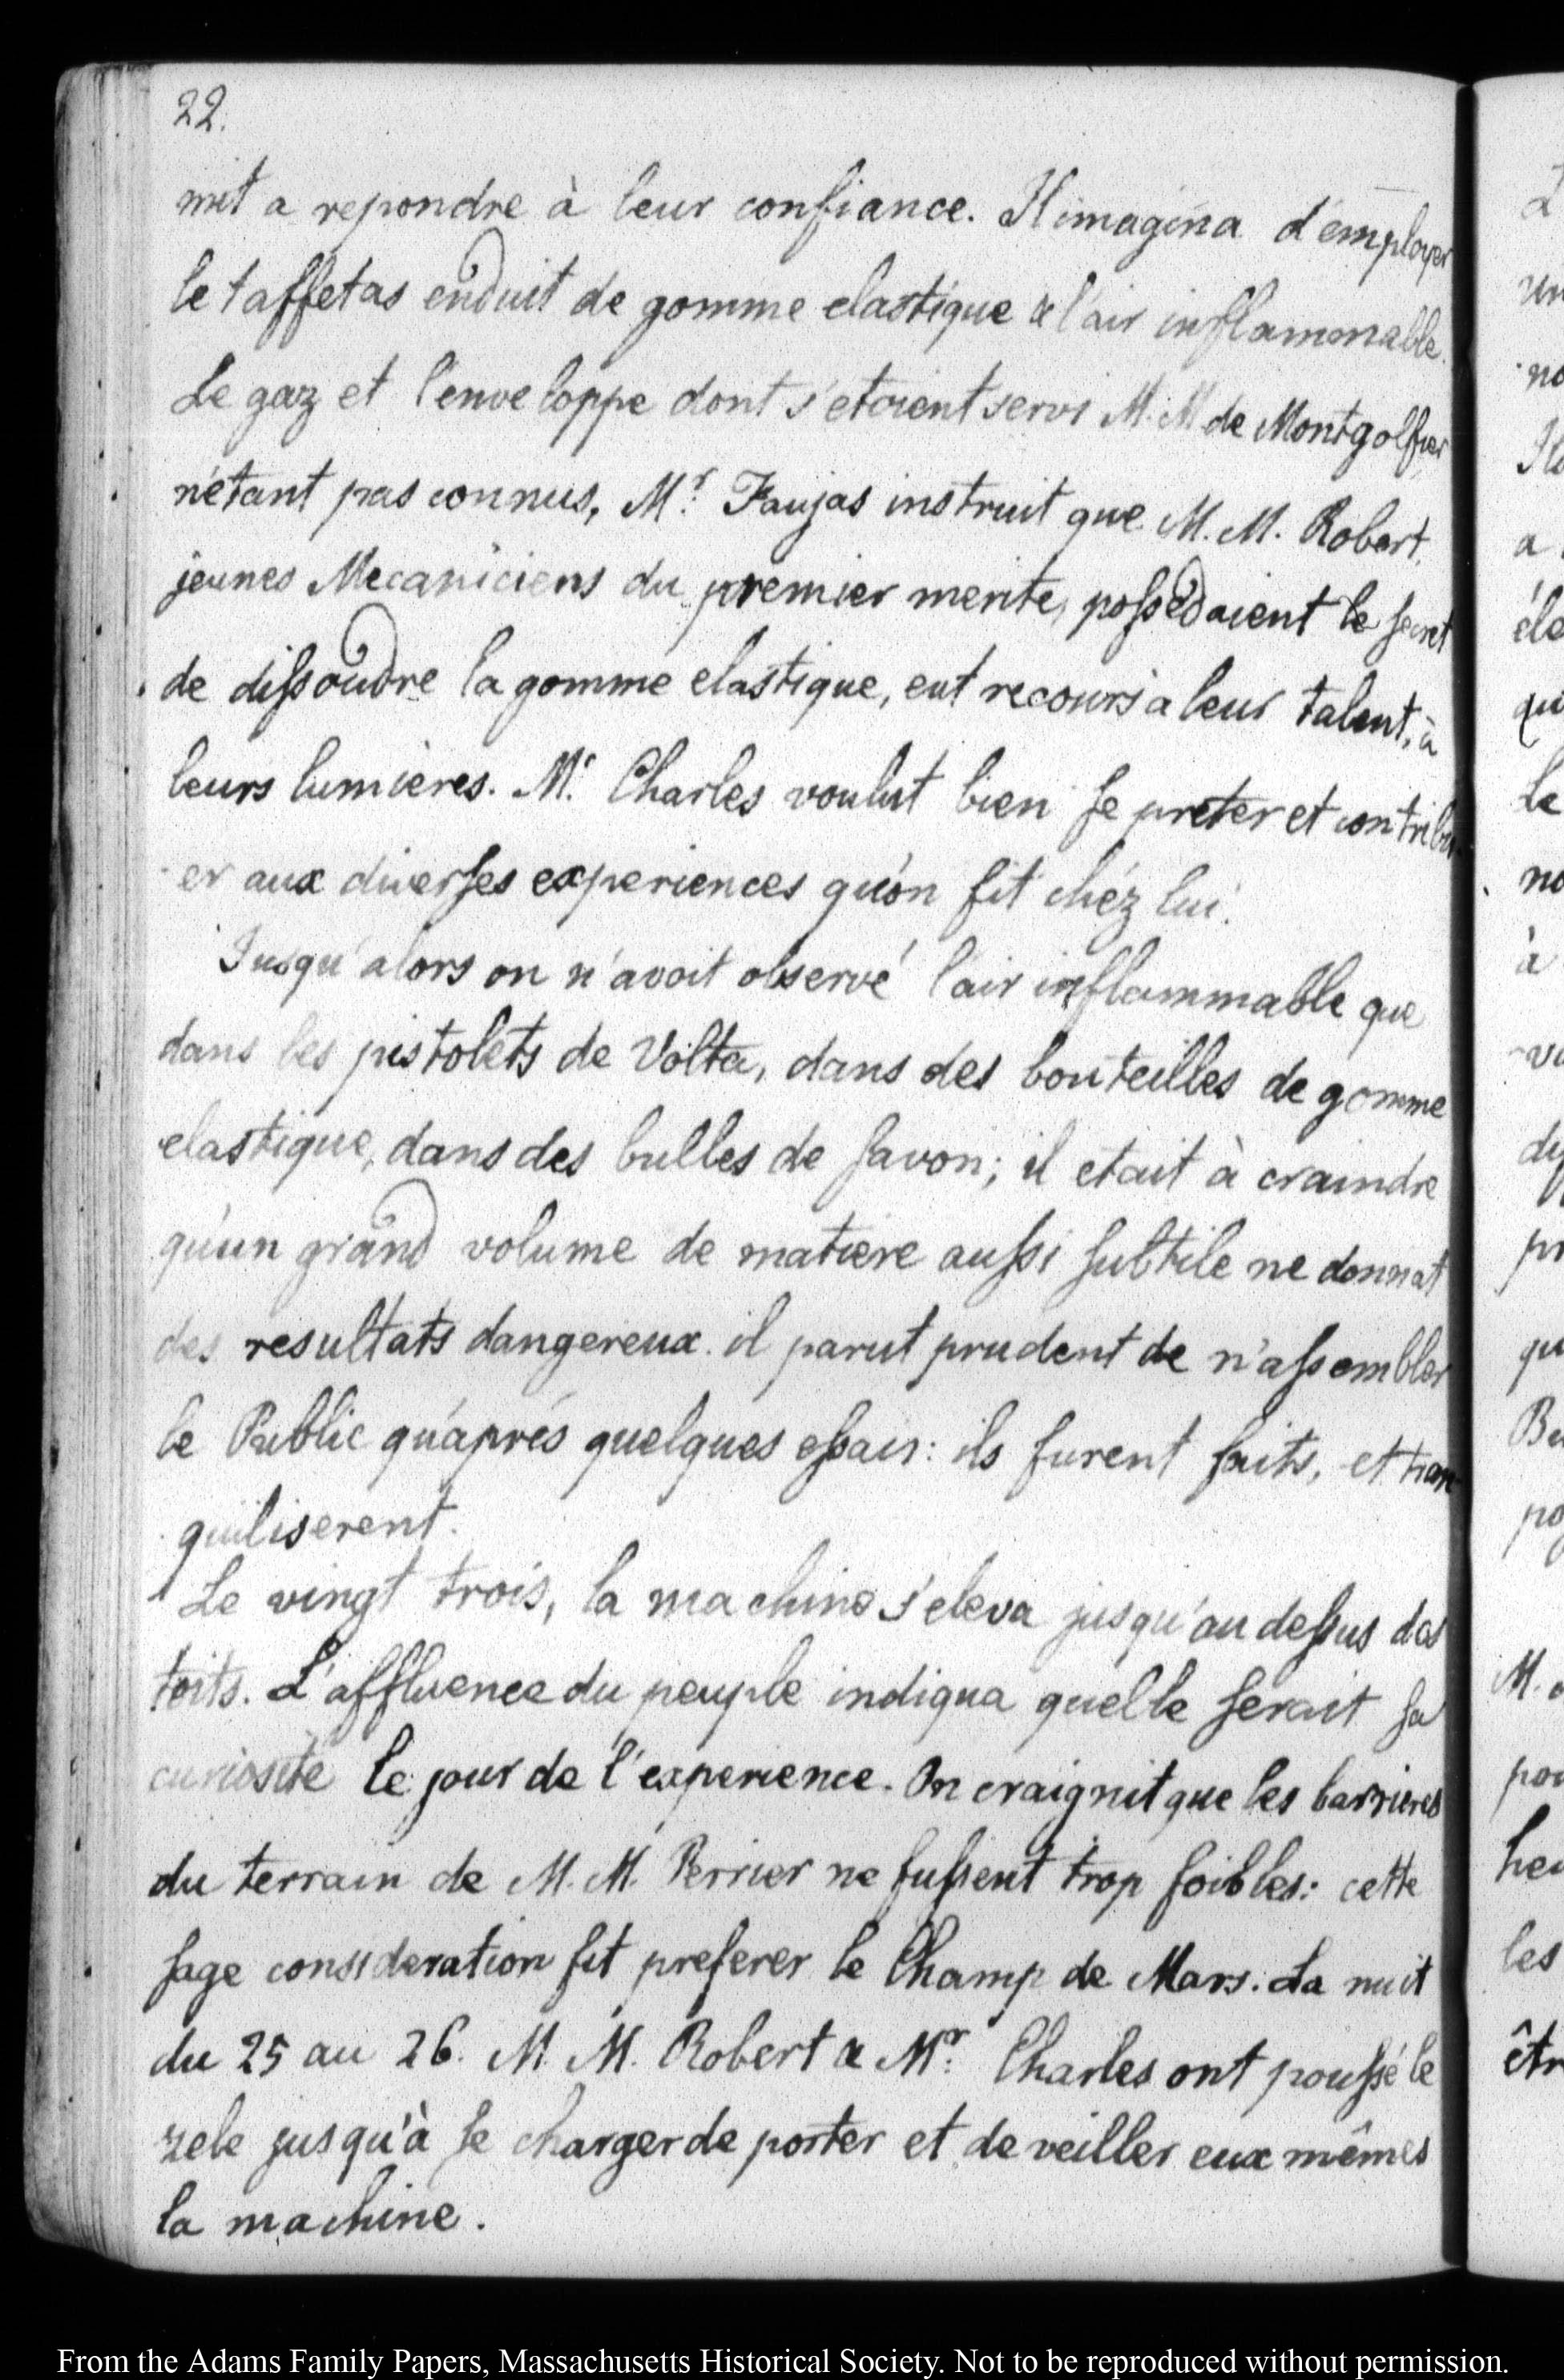 22.
mit a repondre à leur confiance. Il imagina d'employer
le taffetas enduit de gomme elastique & l'air inflammable.
Le gaz et l'enveloppe dont s'etoient servi M. M de Montgolfier
n'étant pas connus, Mr. Faujas instruit que M. M. Robert,
jeunes Mecaniciens du premier merite, possedaient le secret
de dissoudre la gomme elastique, eut recours a leur talent, à
leurs lumières. Mr. Charles voulut bien se preter et contribu-
er aux diverses experiences qu'on fit chéz lui.
Jusqu'alors on n'avoit observé l'air inflammable que
dans les pistolets de Volta, dans des bouteilles de gomme
elastique, dans des bulles de savon; il etait à craindre
qu'un grand volume de matiere aussi subtile ne donnat
des resultats dangereux. il parut prudent de n'assembler
le Public qu'aprés quelques essais: ils furent faits, et tran-
quiliserent.
Le vingt trois, la machine s'eleva jusqu'au dessus des
toits. L'affluence du peuple indiqua quelle serait sa
curiosité le jour de l'experience. On craignit que les barrieres
du terrain de M. M. Perrier ne fussent trop foibles: cette
sage consideration fit preferer le Champ de Mars. La nuit
du 25 au 26. M. M. Robert & Mr. Charles ont poussé le
zele jusqu'à se charger de porter et de veiller eux mêmes
la machine.
les
êtr
From the Adams Family Papers, Massachusetts Historical Society. Not to be reproduced without permission.